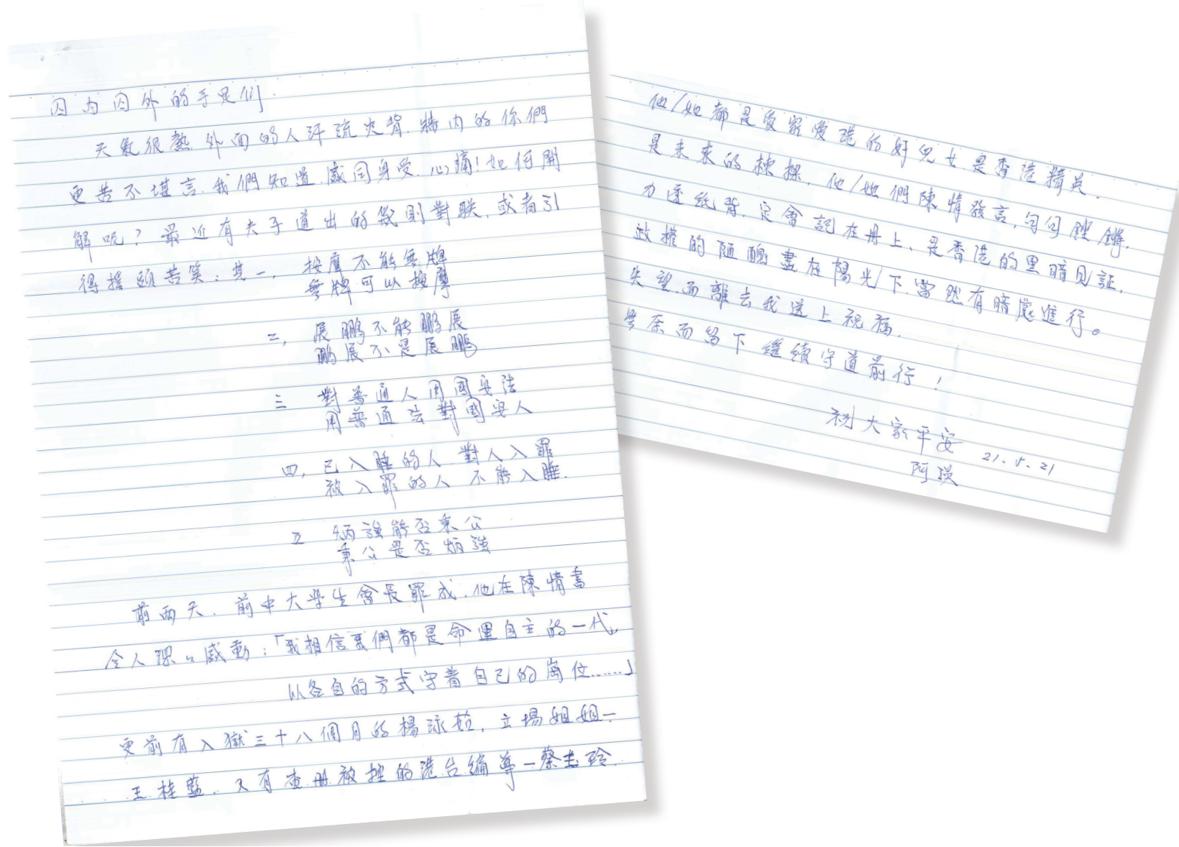 囚内囚外的手足们.
天氣很熱外面的人汗流夾背.牆内的你們
更苦不堪言.我們知道.感同身受.心痛!如何開
解呢?最近有夫子道出的幾則對联.或者引
得搖頭苦笑:其一, 按摩不能無牌
無牌可以按摩
二, 展鵬不能鵬展
鵬展不是展鵬
三 對普通人用國安法
用普通法對國安人
四, 已入睡的人 對人入罪
被入罪的人 不能入睡.
五 炳強能否秉公
秉公是否炳強
前兩天.前中大學生會長罪成.他在陳情書
令人深以感動:「我相信我們都是命運自主的一代,
以各自的方式守着自己的崗位......」
更前有入獄三十八個月的楊泳茹,立場姐姐—
王桂藍.又有查册被控的港台編導—蔡玉玲.
他/她都是愛家愛港的好兒女.是香港精英.
是未來的棟樑.他/她們陳情發言,句句鏗鏘.
力透紙背.定會記在册上、是香港的黑暗见証.
政權的陋醜盡在陽光下.當然有暗處進行。
失望而離去我送上祝福.
無奈而留下 繼續守道前行!
祝大家平安
21.5.21
阿瑛